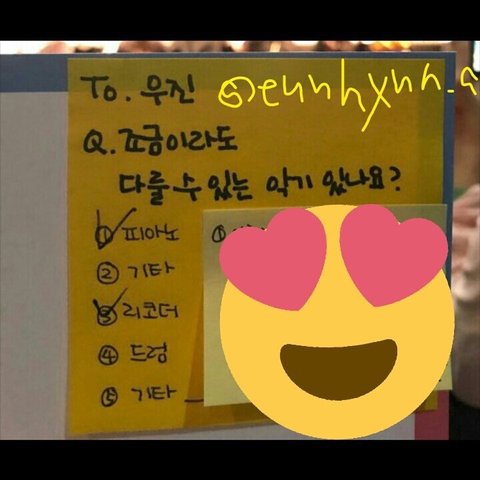 To. 우진
@eunhyun_a
Q. 조금이라도
다룰 수 있는 악기 있나요?
① 피아노
② 기타
③ 리코더
④ 드럼
⑤ 기타_
①